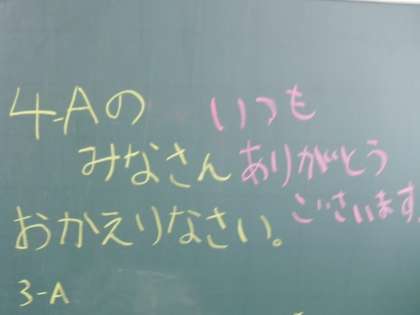 4-Aの
みなさん
おかえりなさい。
いつも
ありがとう
ございます
3-A